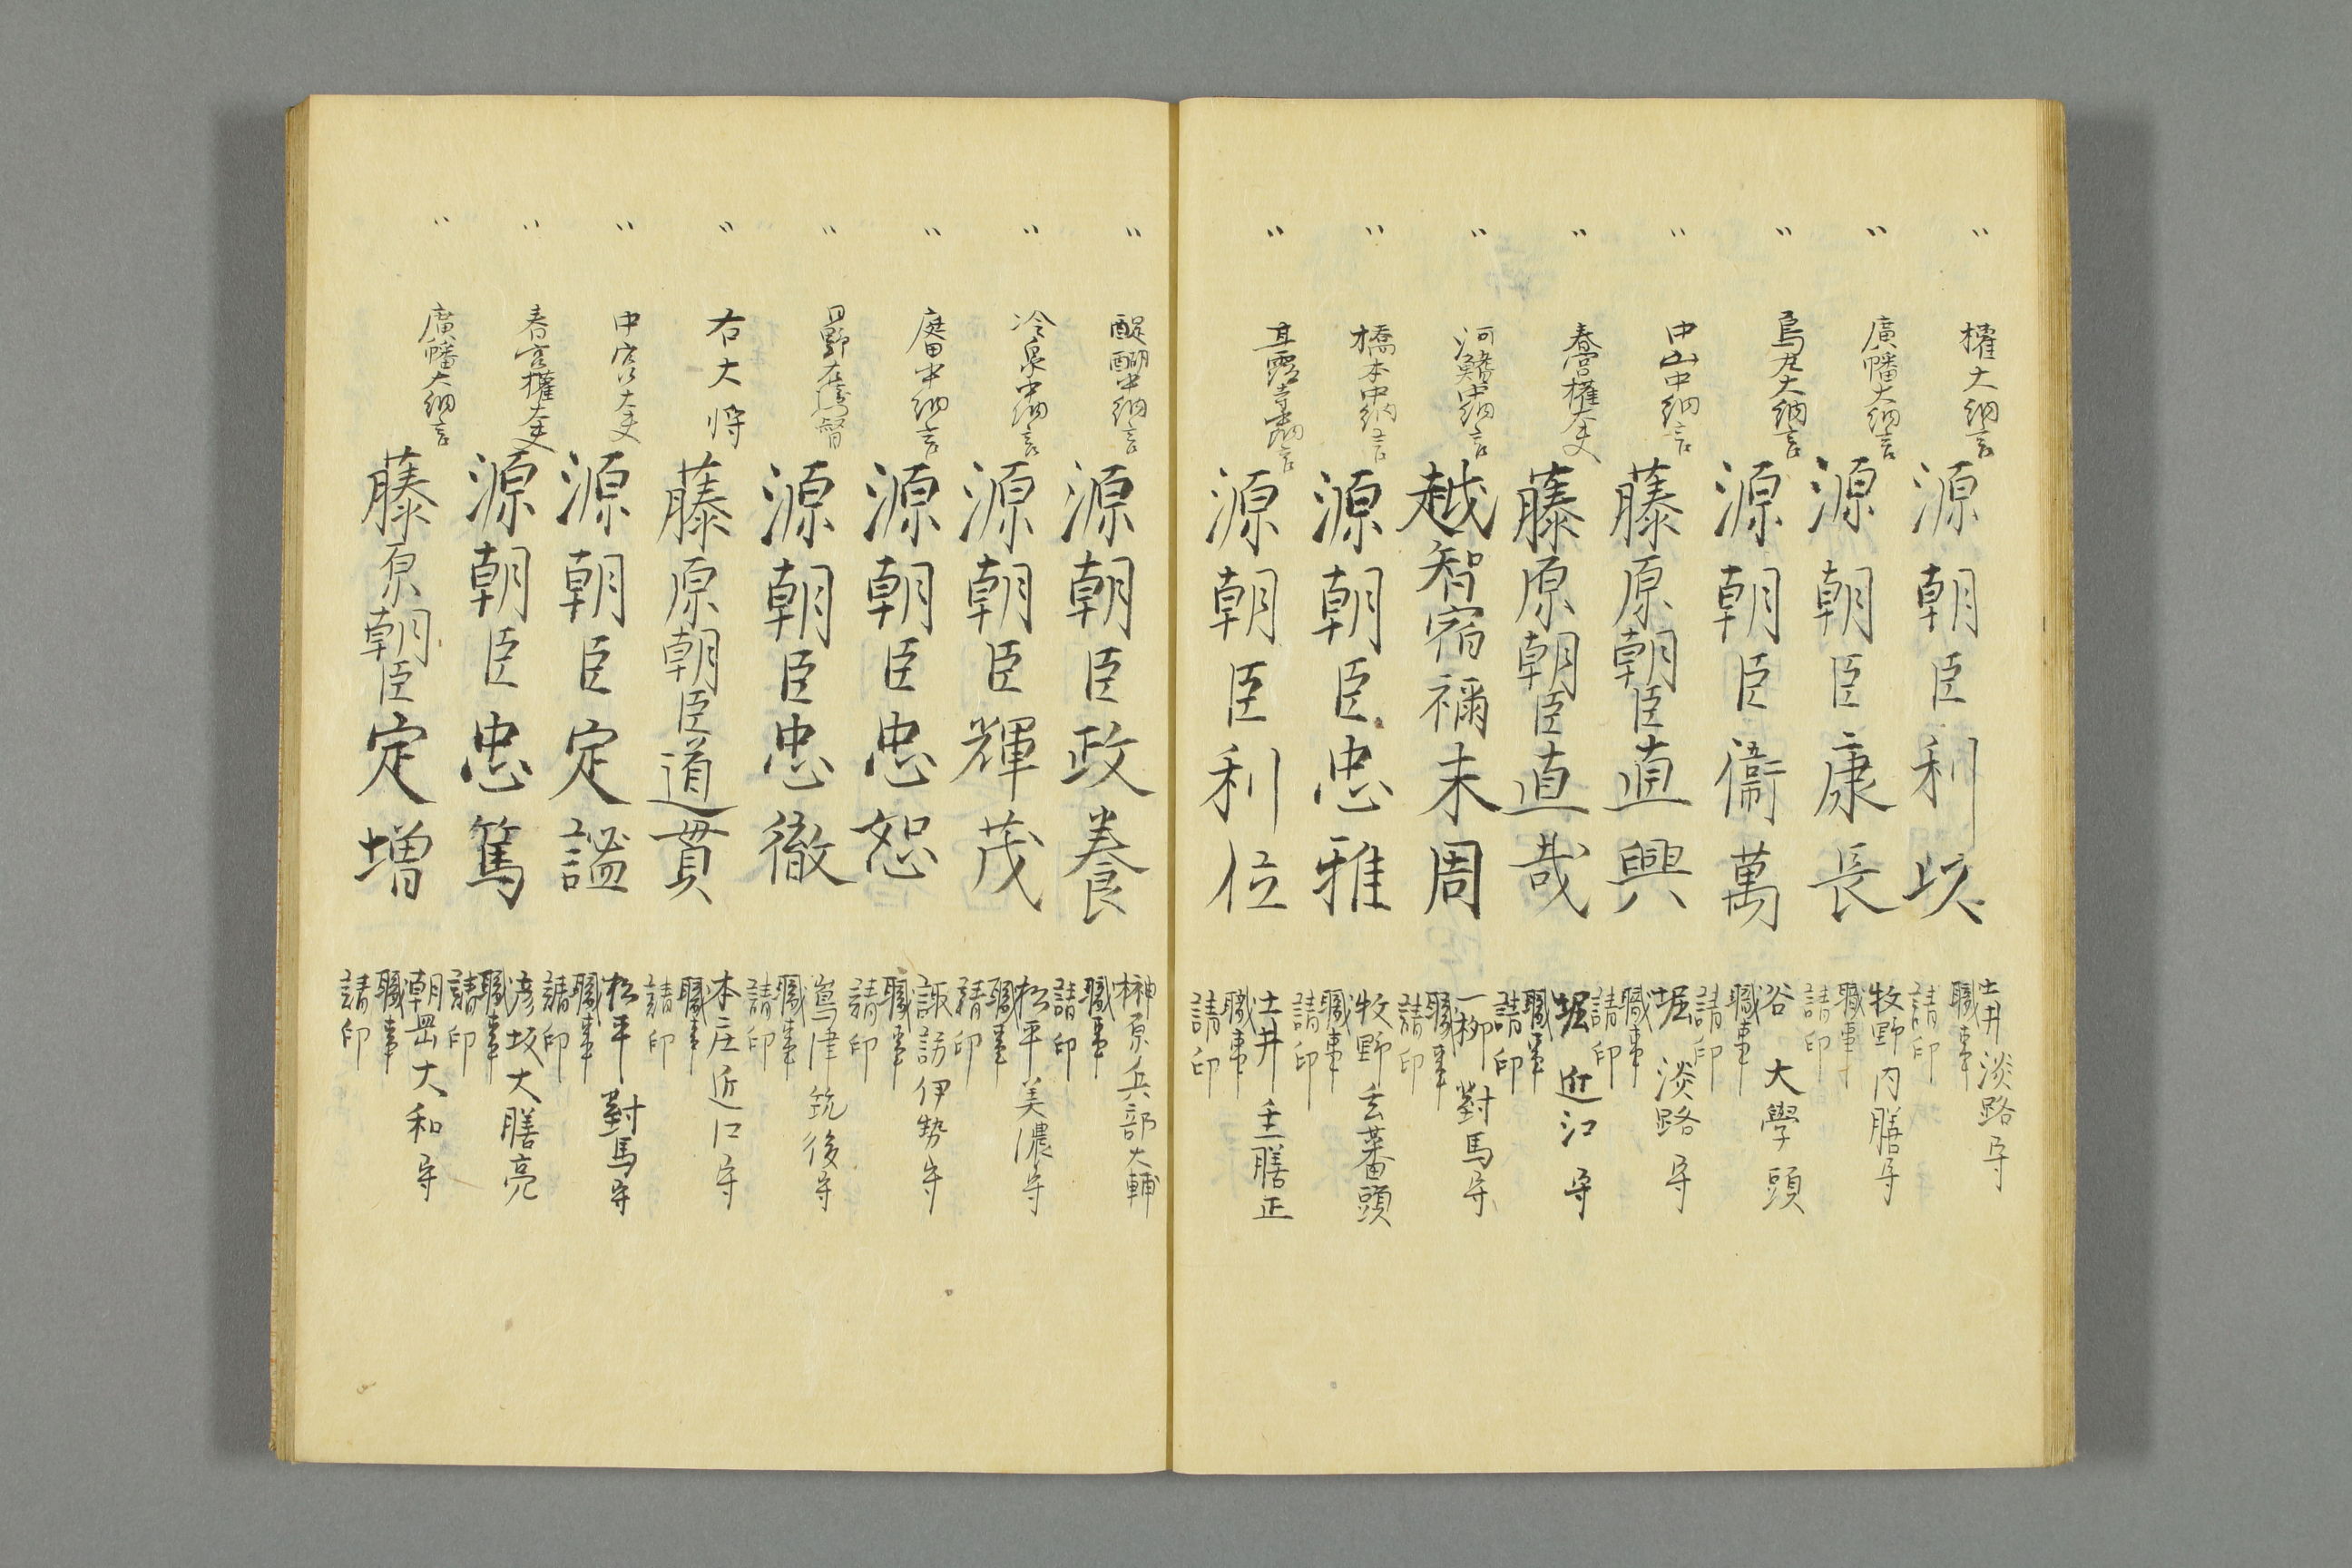 〃 權大納言 源朝臣利坟 土井淡路守
職事
請印
〃 廣幡大納言 源朝臣康長 牧野内膳守
職事
請印
〃 烏丸大納言 源朝臣衞萬 谷大學頭
職事
請印
〃 中山中納言 藤原朝臣直興 堀淡路守
職事
請印
〃 春宮權大夫 藤原朝臣直哉 堀近江守
職事
請印
〃 河鰭中納言 越智宿禰末周 一柳對馬守
職事
請印
〃 橋本中納言 源朝臣忠雅 牧野玄蕃頭
職事
請印
〃 甘露寺中納言 源朝臣利位 土井主膳正
職事
請印
〃 醍醐中納言 源朝臣政養 榊原兵部大輔
職事
請印
〃 冷泉中納言 源朝臣輝茂 松平美濃守
職事
請印
〃 庭田中納言 源朝臣忠恕 諏訪伊勢守
職事
請印
〃 日野右衛門督 源朝臣忠徹 嶌津筑後守
職事
請印
〃 右大将 藤原朝臣道貫 本庄近江守
職事
請印
〃 中宮大夫 源朝臣定謐 松平對馬守
職事
請印
〃 春宮權大夫 源朝臣忠篤 彦坂大膳亮
職事
請印
〃 廣幡大納言 藤原朝臣定増 朝岡大和守
職事
請印